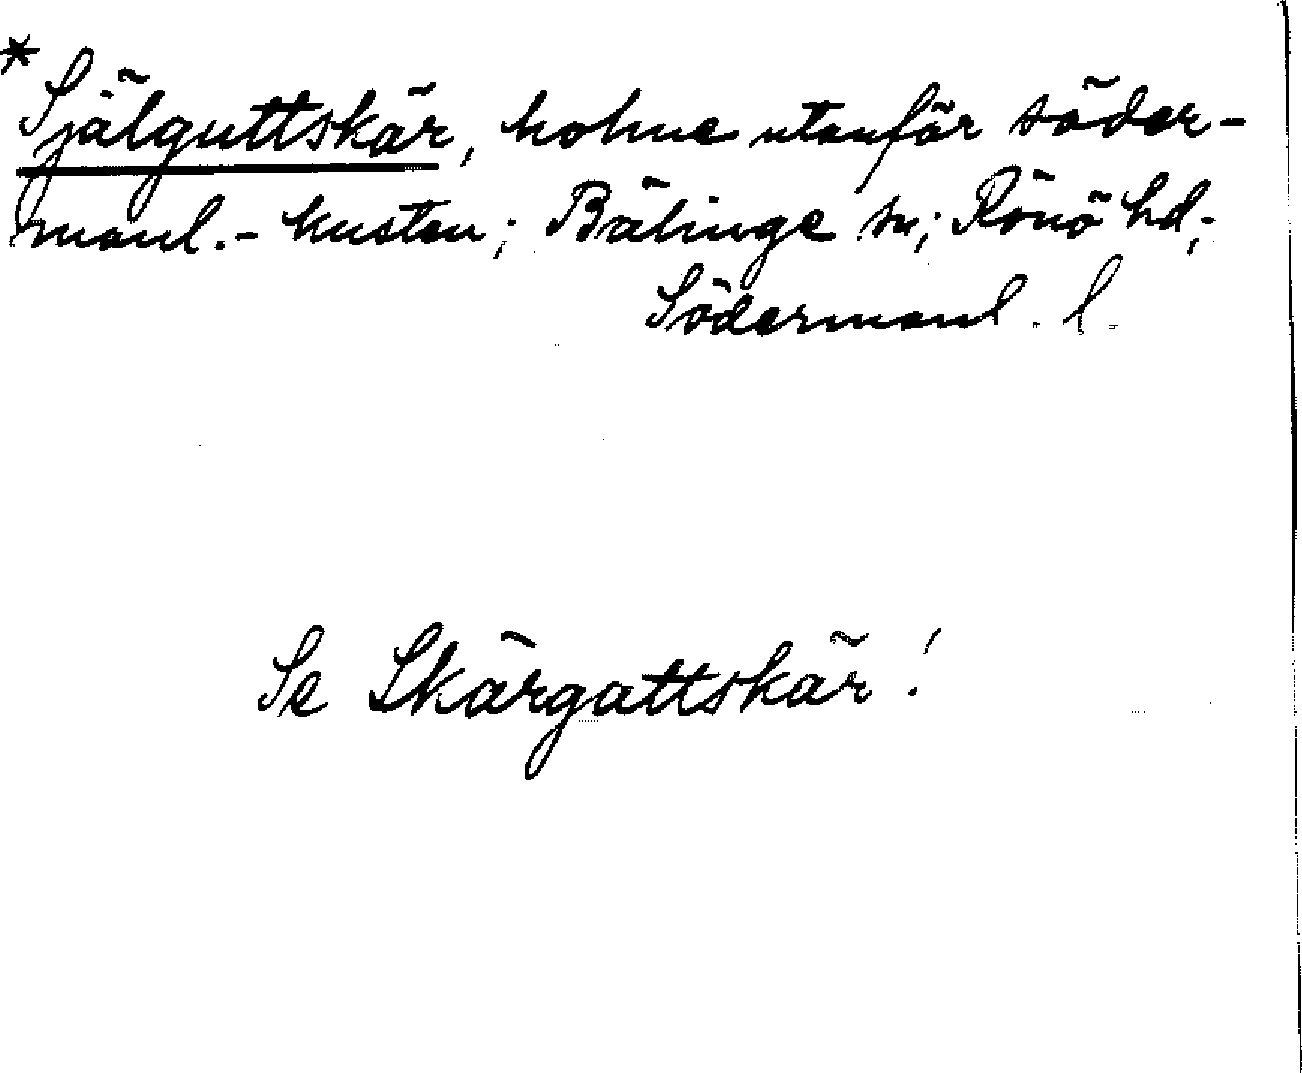 * Själguttskär, holme utanför söder-
manl.- kusten; Bälinge sn; Rönö hd,-
Södermanl. l.
Se Skärgattskär!